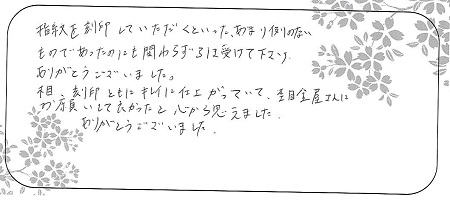 指紋を刻印していただくといった、あまり例のない
ものであったのにも関わらず引き受けて下さり
ありがとうございました。
相、刻印ともにキレイに仕上がっていて、杢目金屋さんに
お願いして良かったと心から思えました。
ありがとうございました。